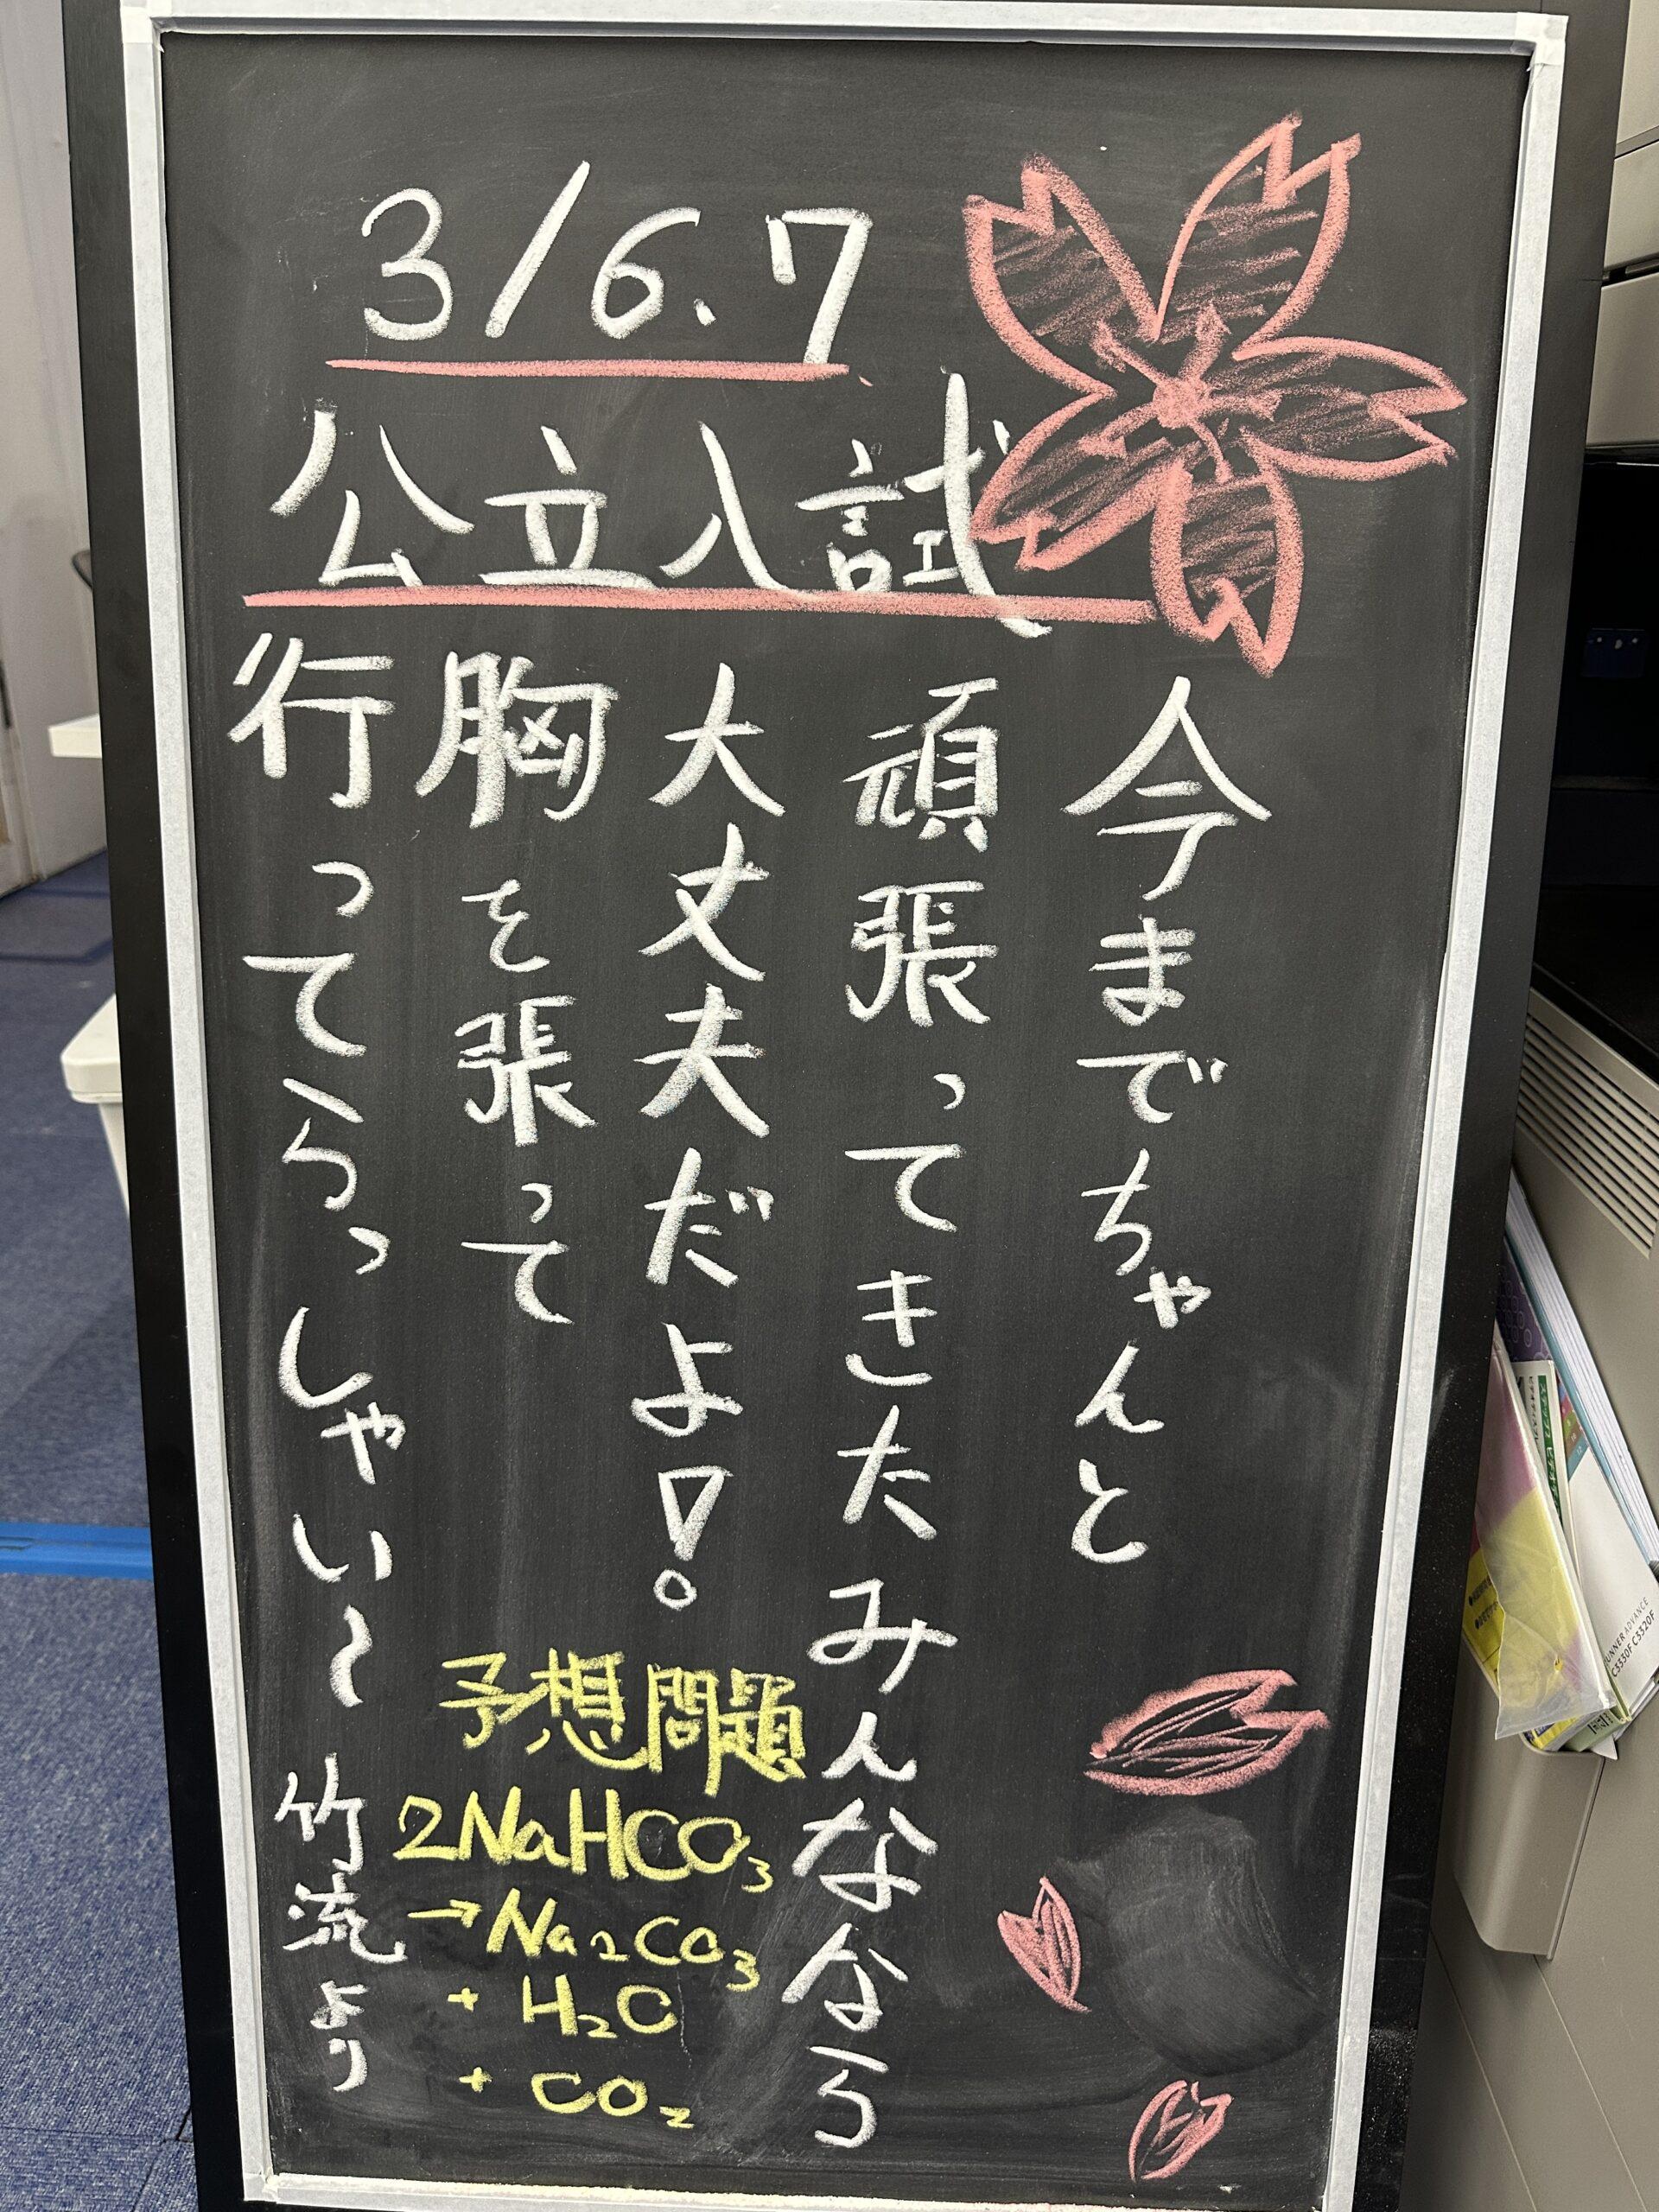 3/6.7
公立入試
今までちゃんと
頑張ってきたみんななら
大丈夫だよ!。
胸を張って
行ってらっしゃい〜
竹流より
予想問題
2NaHCO₃
→Na₂CO₃
+ H₂O
+ CO₂
C3330F C3320F